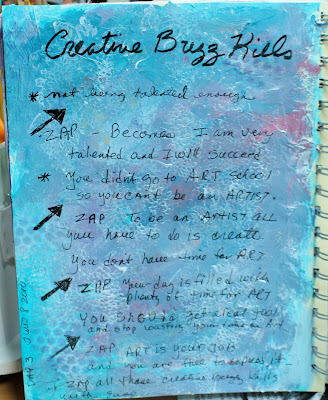 Creative Buzz Kills
* not being talented enough
ZAP - Becomes I am very
talented and I will succeed.
* You didn't go to ART school
so you can't be an ARTIST.
ZAP To be an ARTIST ALL
you have to do is create.
You dont have time for ART
ZAP Your day is filled with
plenty of time for ART
You should get a real job
and stop wasting your time on Art
ZAP ART IS YOUR JOB
and you are free to express it
* ZAP all those creative buzz kills
with
DAY 3